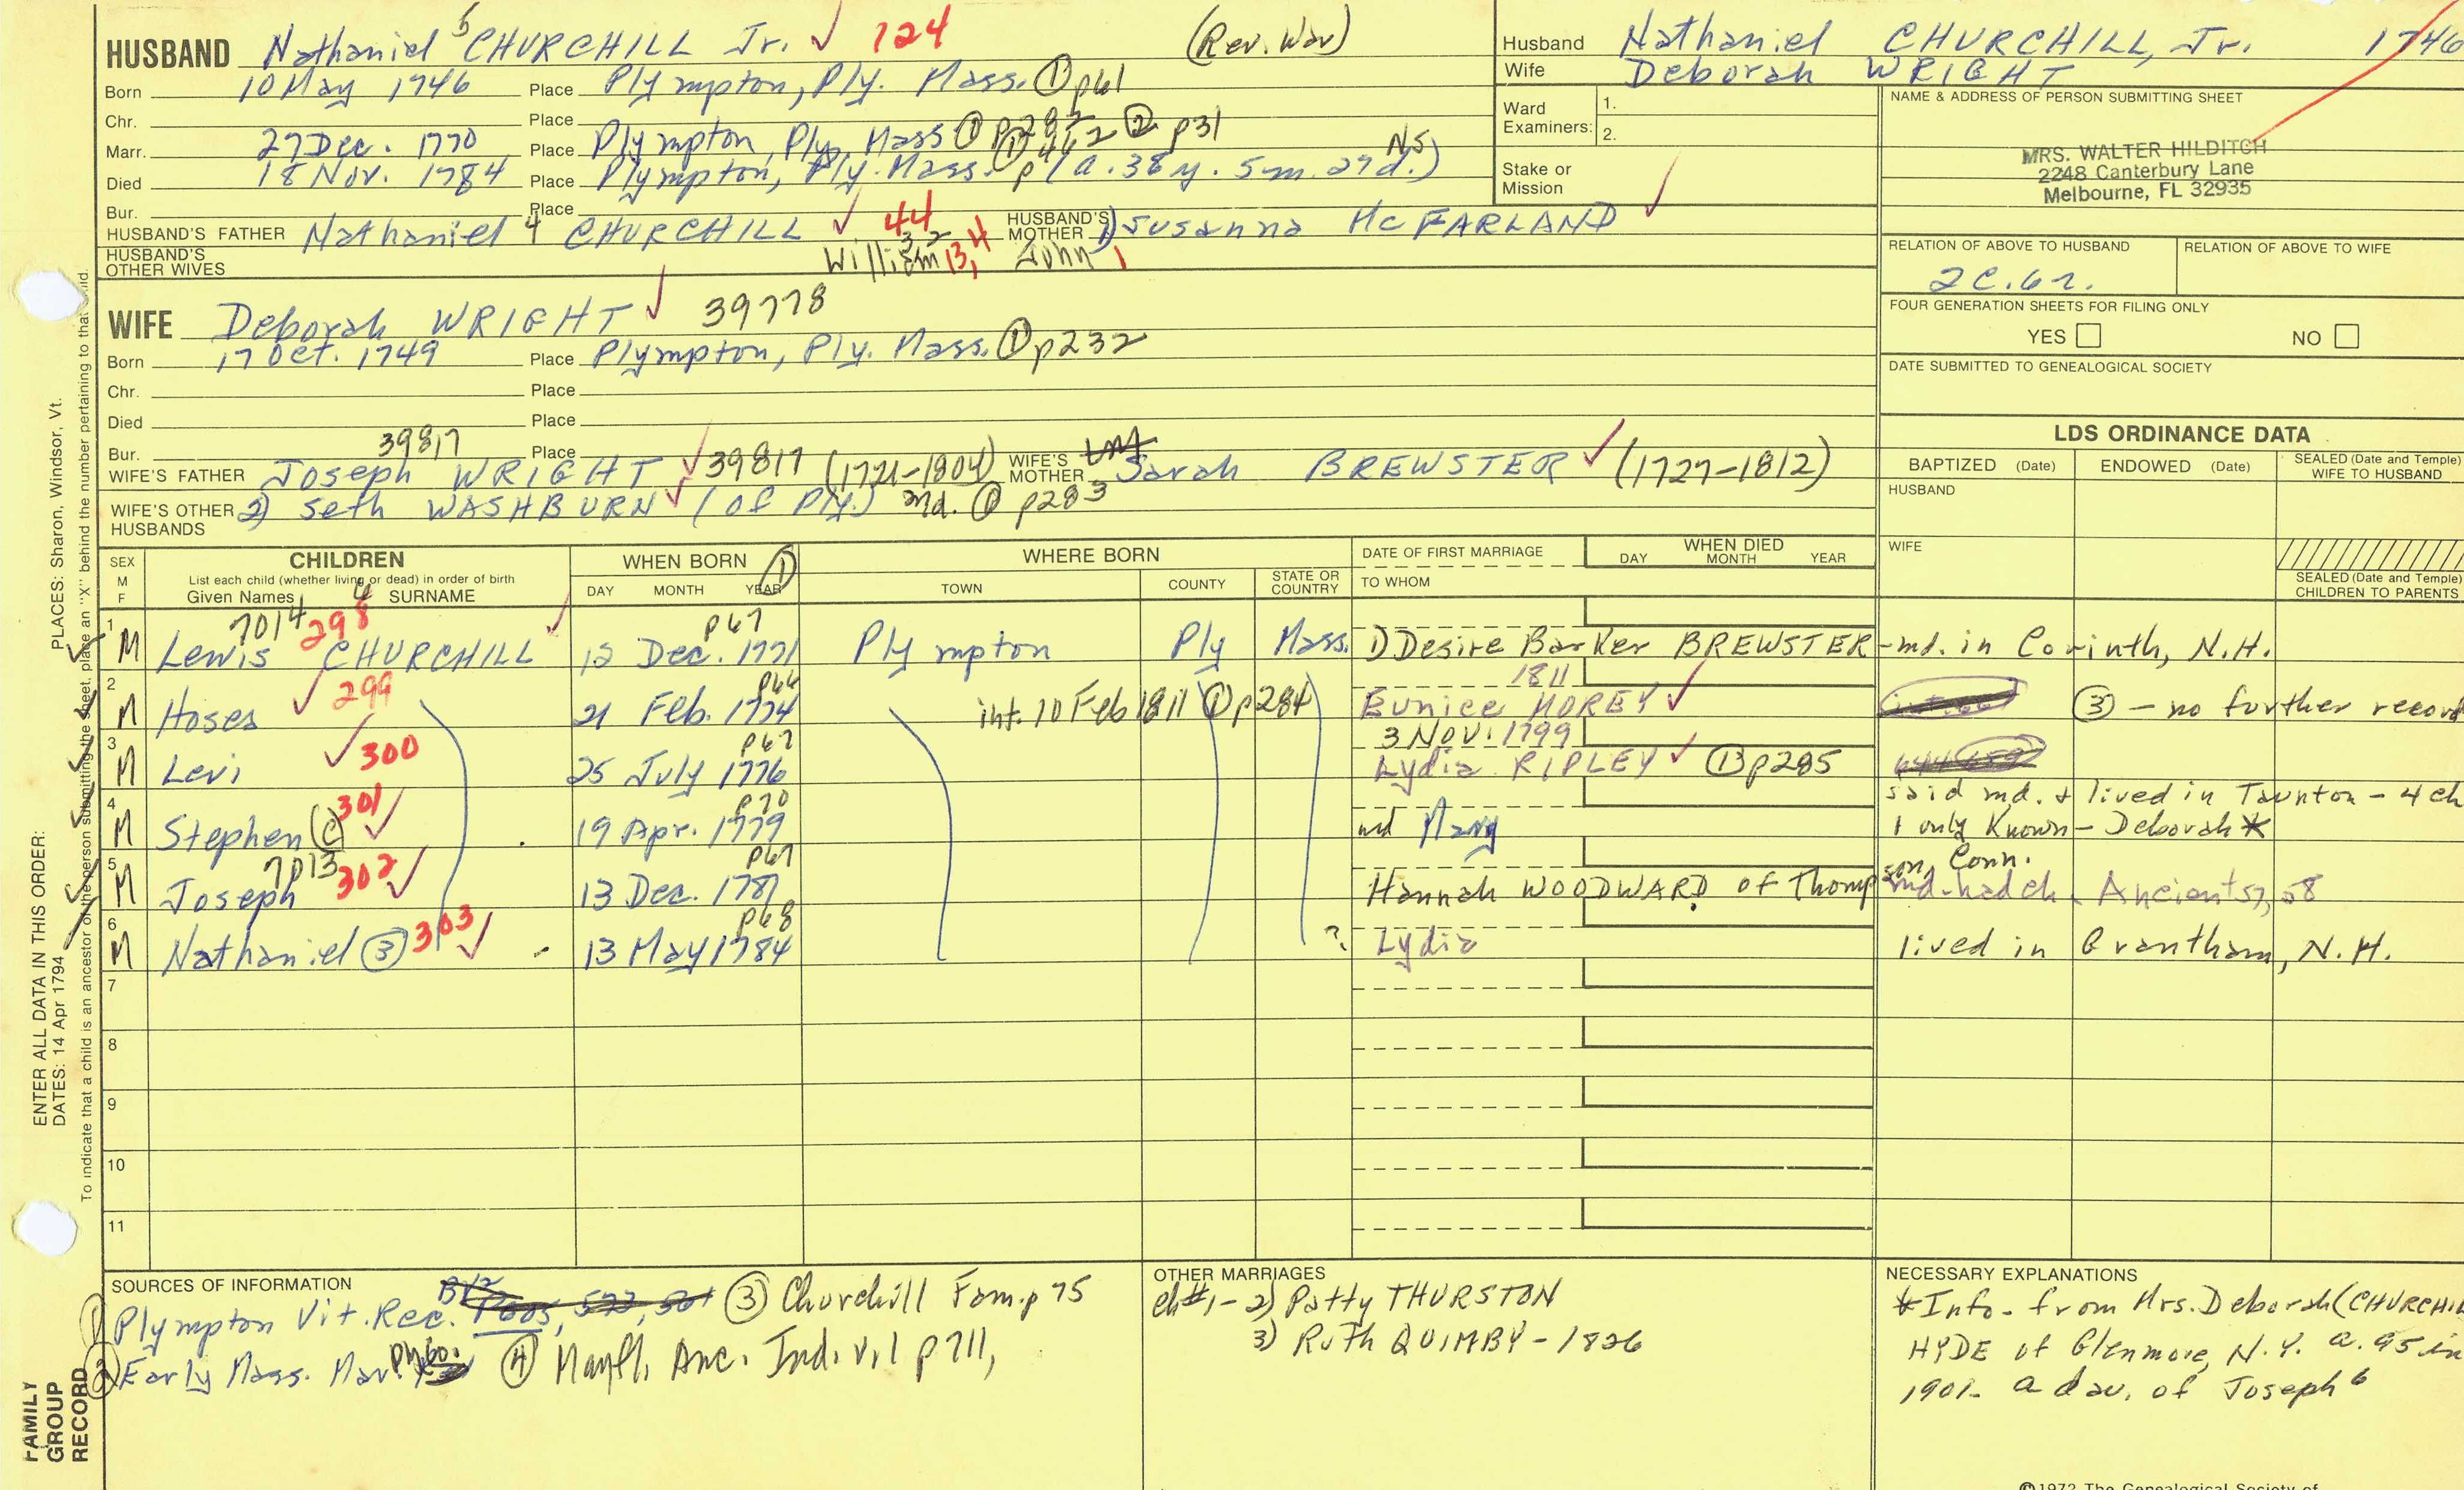 HUSBAND Nathaniel 5 CHURCHILL Jr. ✓ 124 (Rev. War)
Born 10 May 1746 Place Plympton, Ply. Mass. ① p61
Chr. Place
Marr. 27 Dec. 1770 Place Plympton, Ply. Mass ① p282 ② p31
Died 18 Nov. 1784 Place Plympton, Ply. Mass. ① p462 (a. 38 y. 5 m. 27 d.) N.S.
Bur. Place
HUSBAND'S FATHER Nathaniel 4 CHURCHILL ✓ 44 HUSBAND'S MOTHER 1) Susanna McFARLAND ✓
HUSBAND'S OTHER WIVES William 3, 2 13, 4 John 1
WIFE Deborah WRIGHT ✓ 39778
Born 17 Oct. 1749 Place Plympton, Ply. Mass. ① p232
Chr. Place
Died Place
Bur. 39817 Place
WIFE'S FATHER Joseph WRIGHT ✓ 39817 (1721-1804) WIFE'S MOTHER Sarah BREWSTER ✓ (1727-1812)
WIFE'S OTHER HUSBANDS 2) Seth WASHBURN ✓ (of Ply.) md. ① p283
Husband Nathaniel CHURCHILL, Jr. 1746
Wife Deborah WRIGHT
Ward Examiners: 1.
2.
Stake or Mission
NAME & ADDRESS OF PERSON SUBMITTING SHEET
MRS. WALTER HILDITCH
2248 Canterbury Lane
Melbourne, FL 32935
RELATION OF ABOVE TO HUSBAND RELATION OF ABOVE TO WIFE
2C.6r.
FOUR GENERATION SHEETS FOR FILING ONLY
YES NO
DATE SUBMITTED TO GENEALOGICAL SOCIETY
LDS ORDINANCE DATA
BAPTIZED (Date) ENDOWED (Date) SEALED (Date and Temple) WIFE TO HUSBAND
HUSBAND
WIFE
SEALED (Date and Temple) CHILDREN TO PARENTS
SEX M F CHILDREN List each child (whether living or dead) in order of birth Given Names SURNAME WHEN BORN ① DAY MONTH YEAR WHERE BORN TOWN COUNTY STATE OR COUNTRY DATE OF FIRST MARRIAGE TO WHOM WHEN DIED DAY MONTH YEAR
1 M Lewis CHURCHILL 7014 298 ✓ 12 Dec. 1771 p67 Plympton Ply Mass. 1) Desire Barker BREWSTER - md. in Corinth, N.H.
2 M Hoses ✓ 299 21 Feb. 1774 p66 int. 10 Feb 1811 ① p284 1811 Eunice MOREY ✓ ③ - no further record
3 M Levi ✓ 300 25 July 1776 p67 3 Nov. 1799 Lydia RIPLEY ✓ ① p285
4 M Stephen (C) 301 ✓ 19 Apr. 1779 p70 md Mary said md. & lived in Taunton - 4 ch 1 only Known - Deborah *
5 M Joseph 7013 302 ✓ 13 Dec. 1781 p67 Hannah WOODWARD of Thompson, Conn. md - had ch. Ancients, 58
6 M Nathaniel ③ 303 ✓ 13 May 1784 p68 ? Lydia lived in Grantham, N.H.
7
8
9
10
11
SOURCES OF INFORMATION
① Plympton Vit. Rec. ③ Churchill Fam. p 75
② Early Mass. Mar. ④ Mayfl. Anc. Ind. v.1 p 711,
OTHER MARRIAGES
ch #1 - 2) Patty THURSTON
3) Ruth QUIMBY - 1826
NECESSARY EXPLANATIONS
* Info - from Mrs. Deborah (CHURCHIL
HYDE of Glenmore, N.Y. a. 95 in
1901 - a dau. of Joseph 6
ENTER ALL DATA IN THIS ORDER:
DATES: 14 Apr 1794 PLACES: Sharon, Windsor, Vt.
To indicate that a child is an ancestor of the person submitting the sheet, place an "X" behind the number pertaining to that child.
FAMILY GROUP RECORD
©1972 The Genealogical Society of